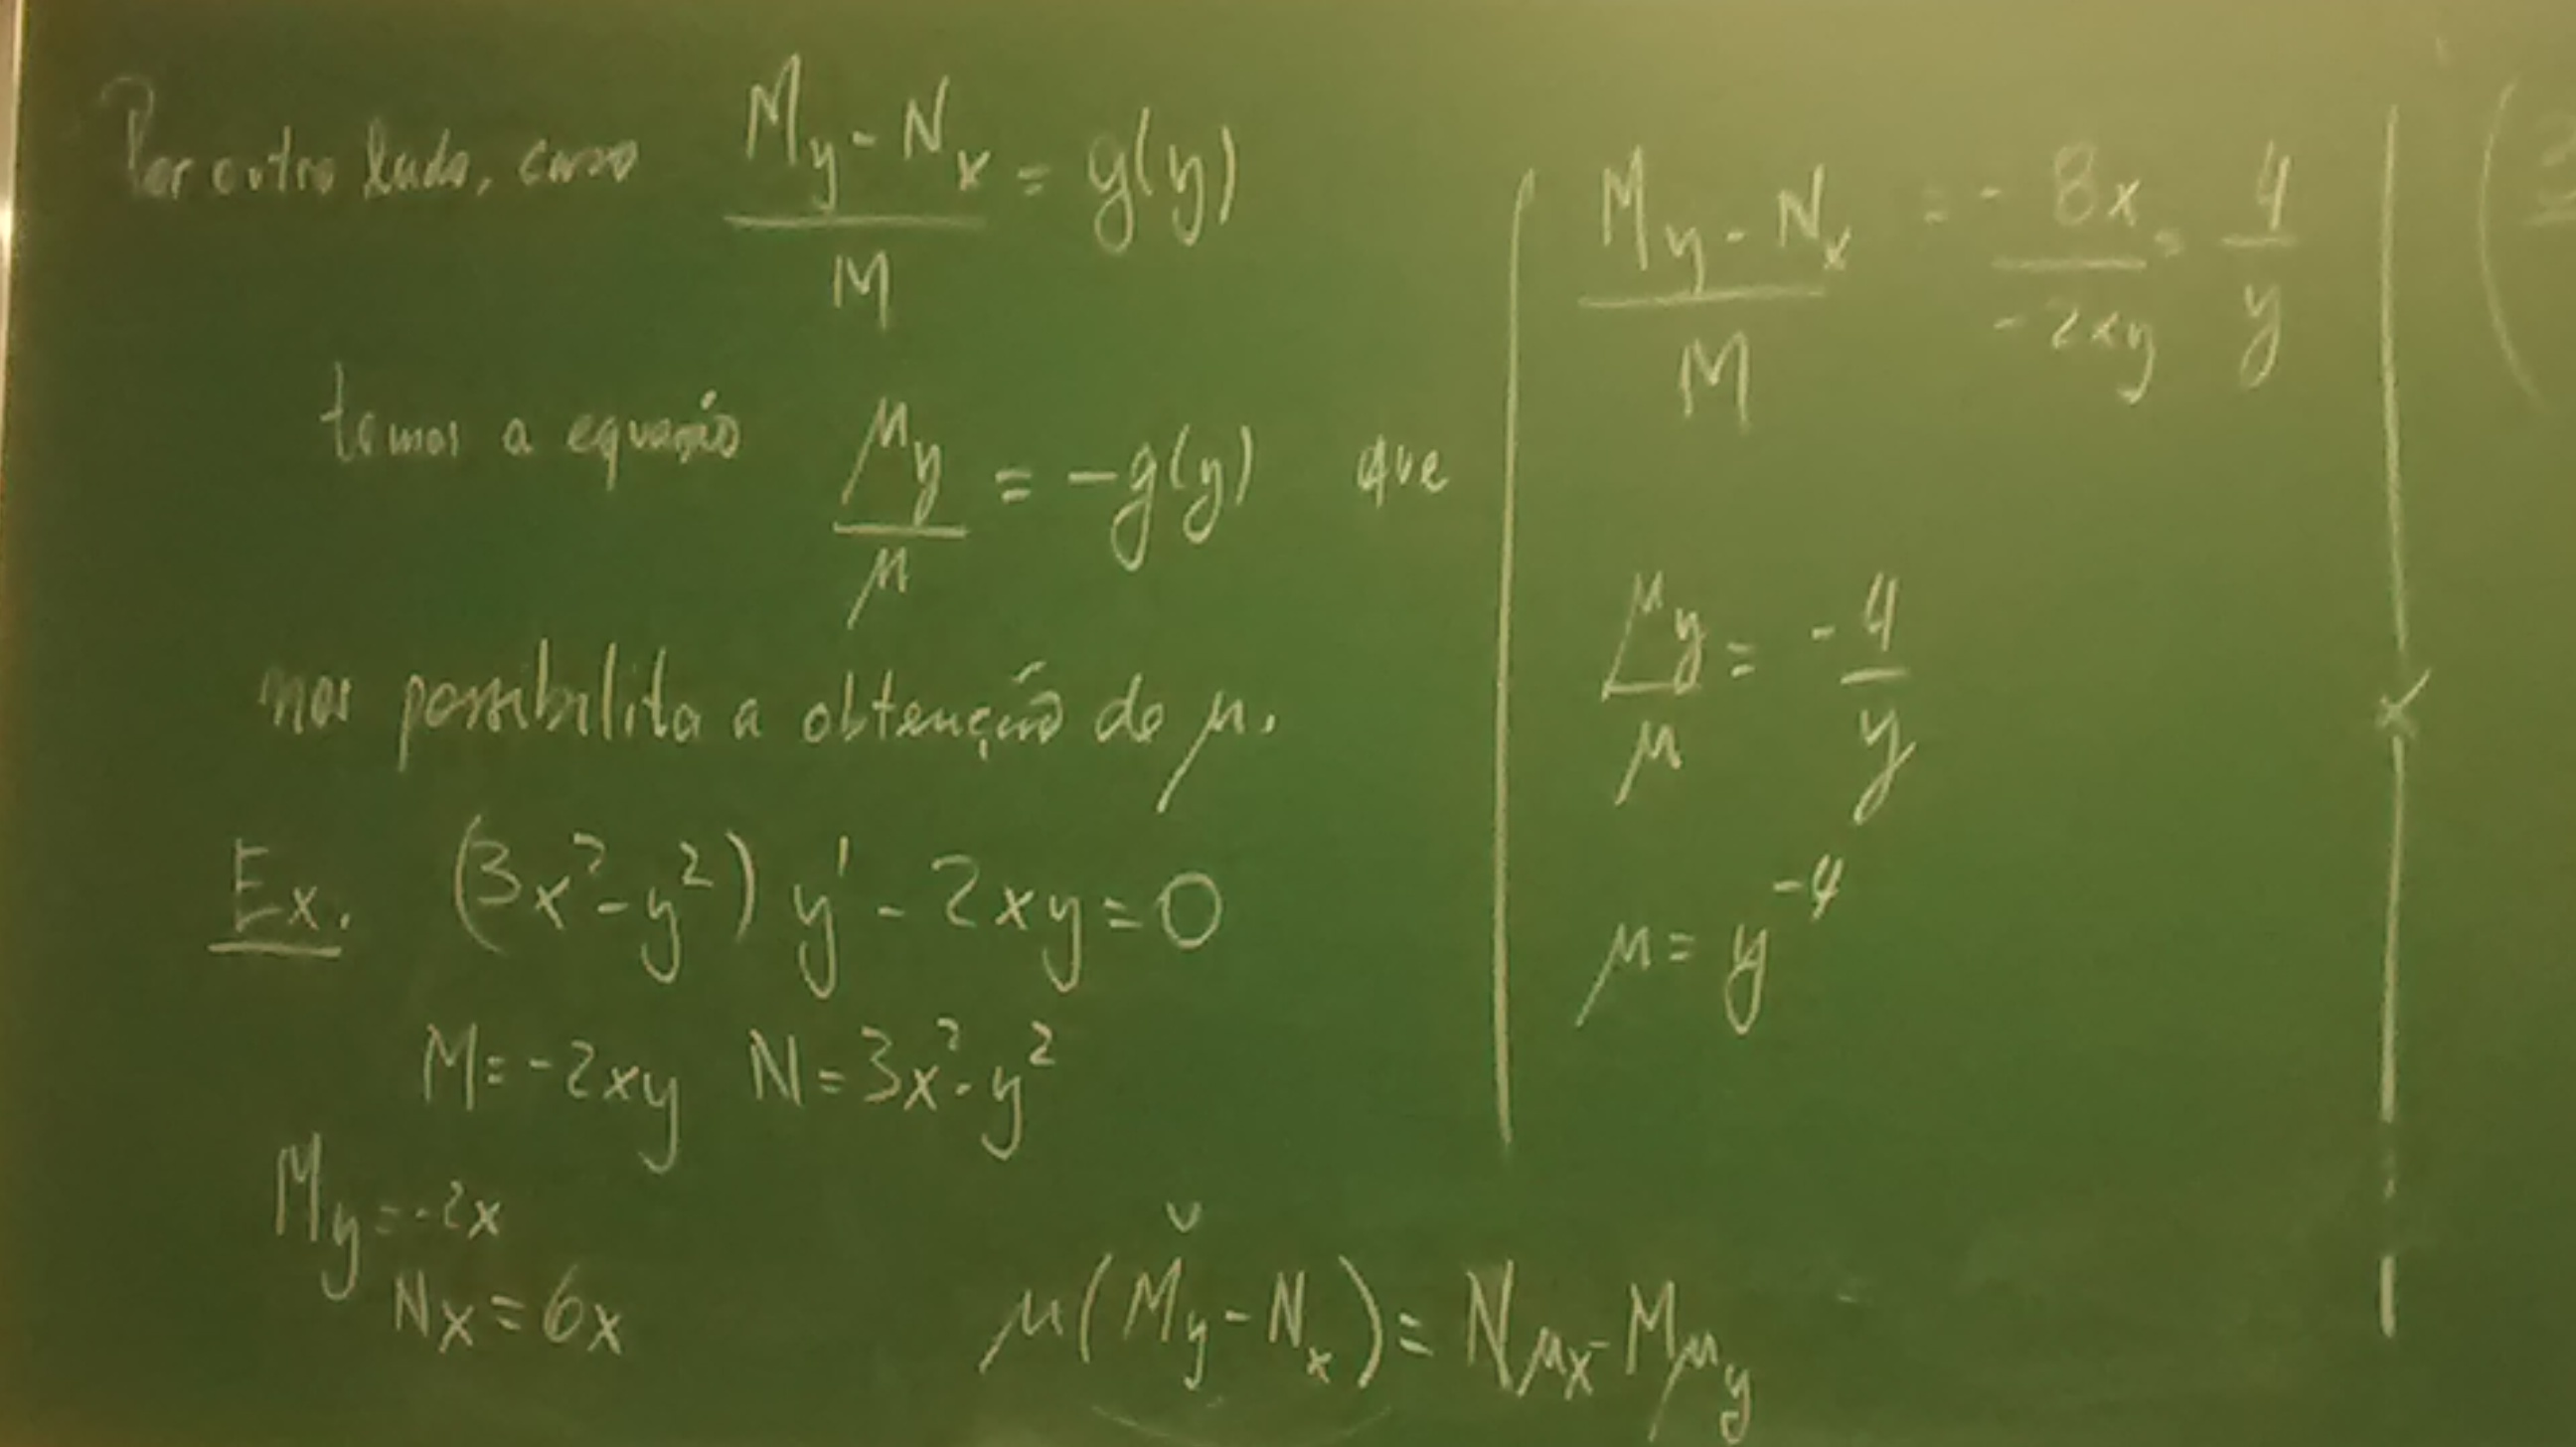 Por outro lado, caso (My - Nx)/M = g(y)
temos a equação μy/μ = -g(y) que
nos possibilita a obtenção de μ.
Ex. (3x² - y²) y' - 2xy = 0
M = -2xy N = 3x² - y²
My = -2x
Nx = 6x
μ(My - Nx) = Nμx - Mμy
(My - Nx)/M = -8x/-2xy = 4/y
μy/μ = -4/y
μ = y⁻⁴